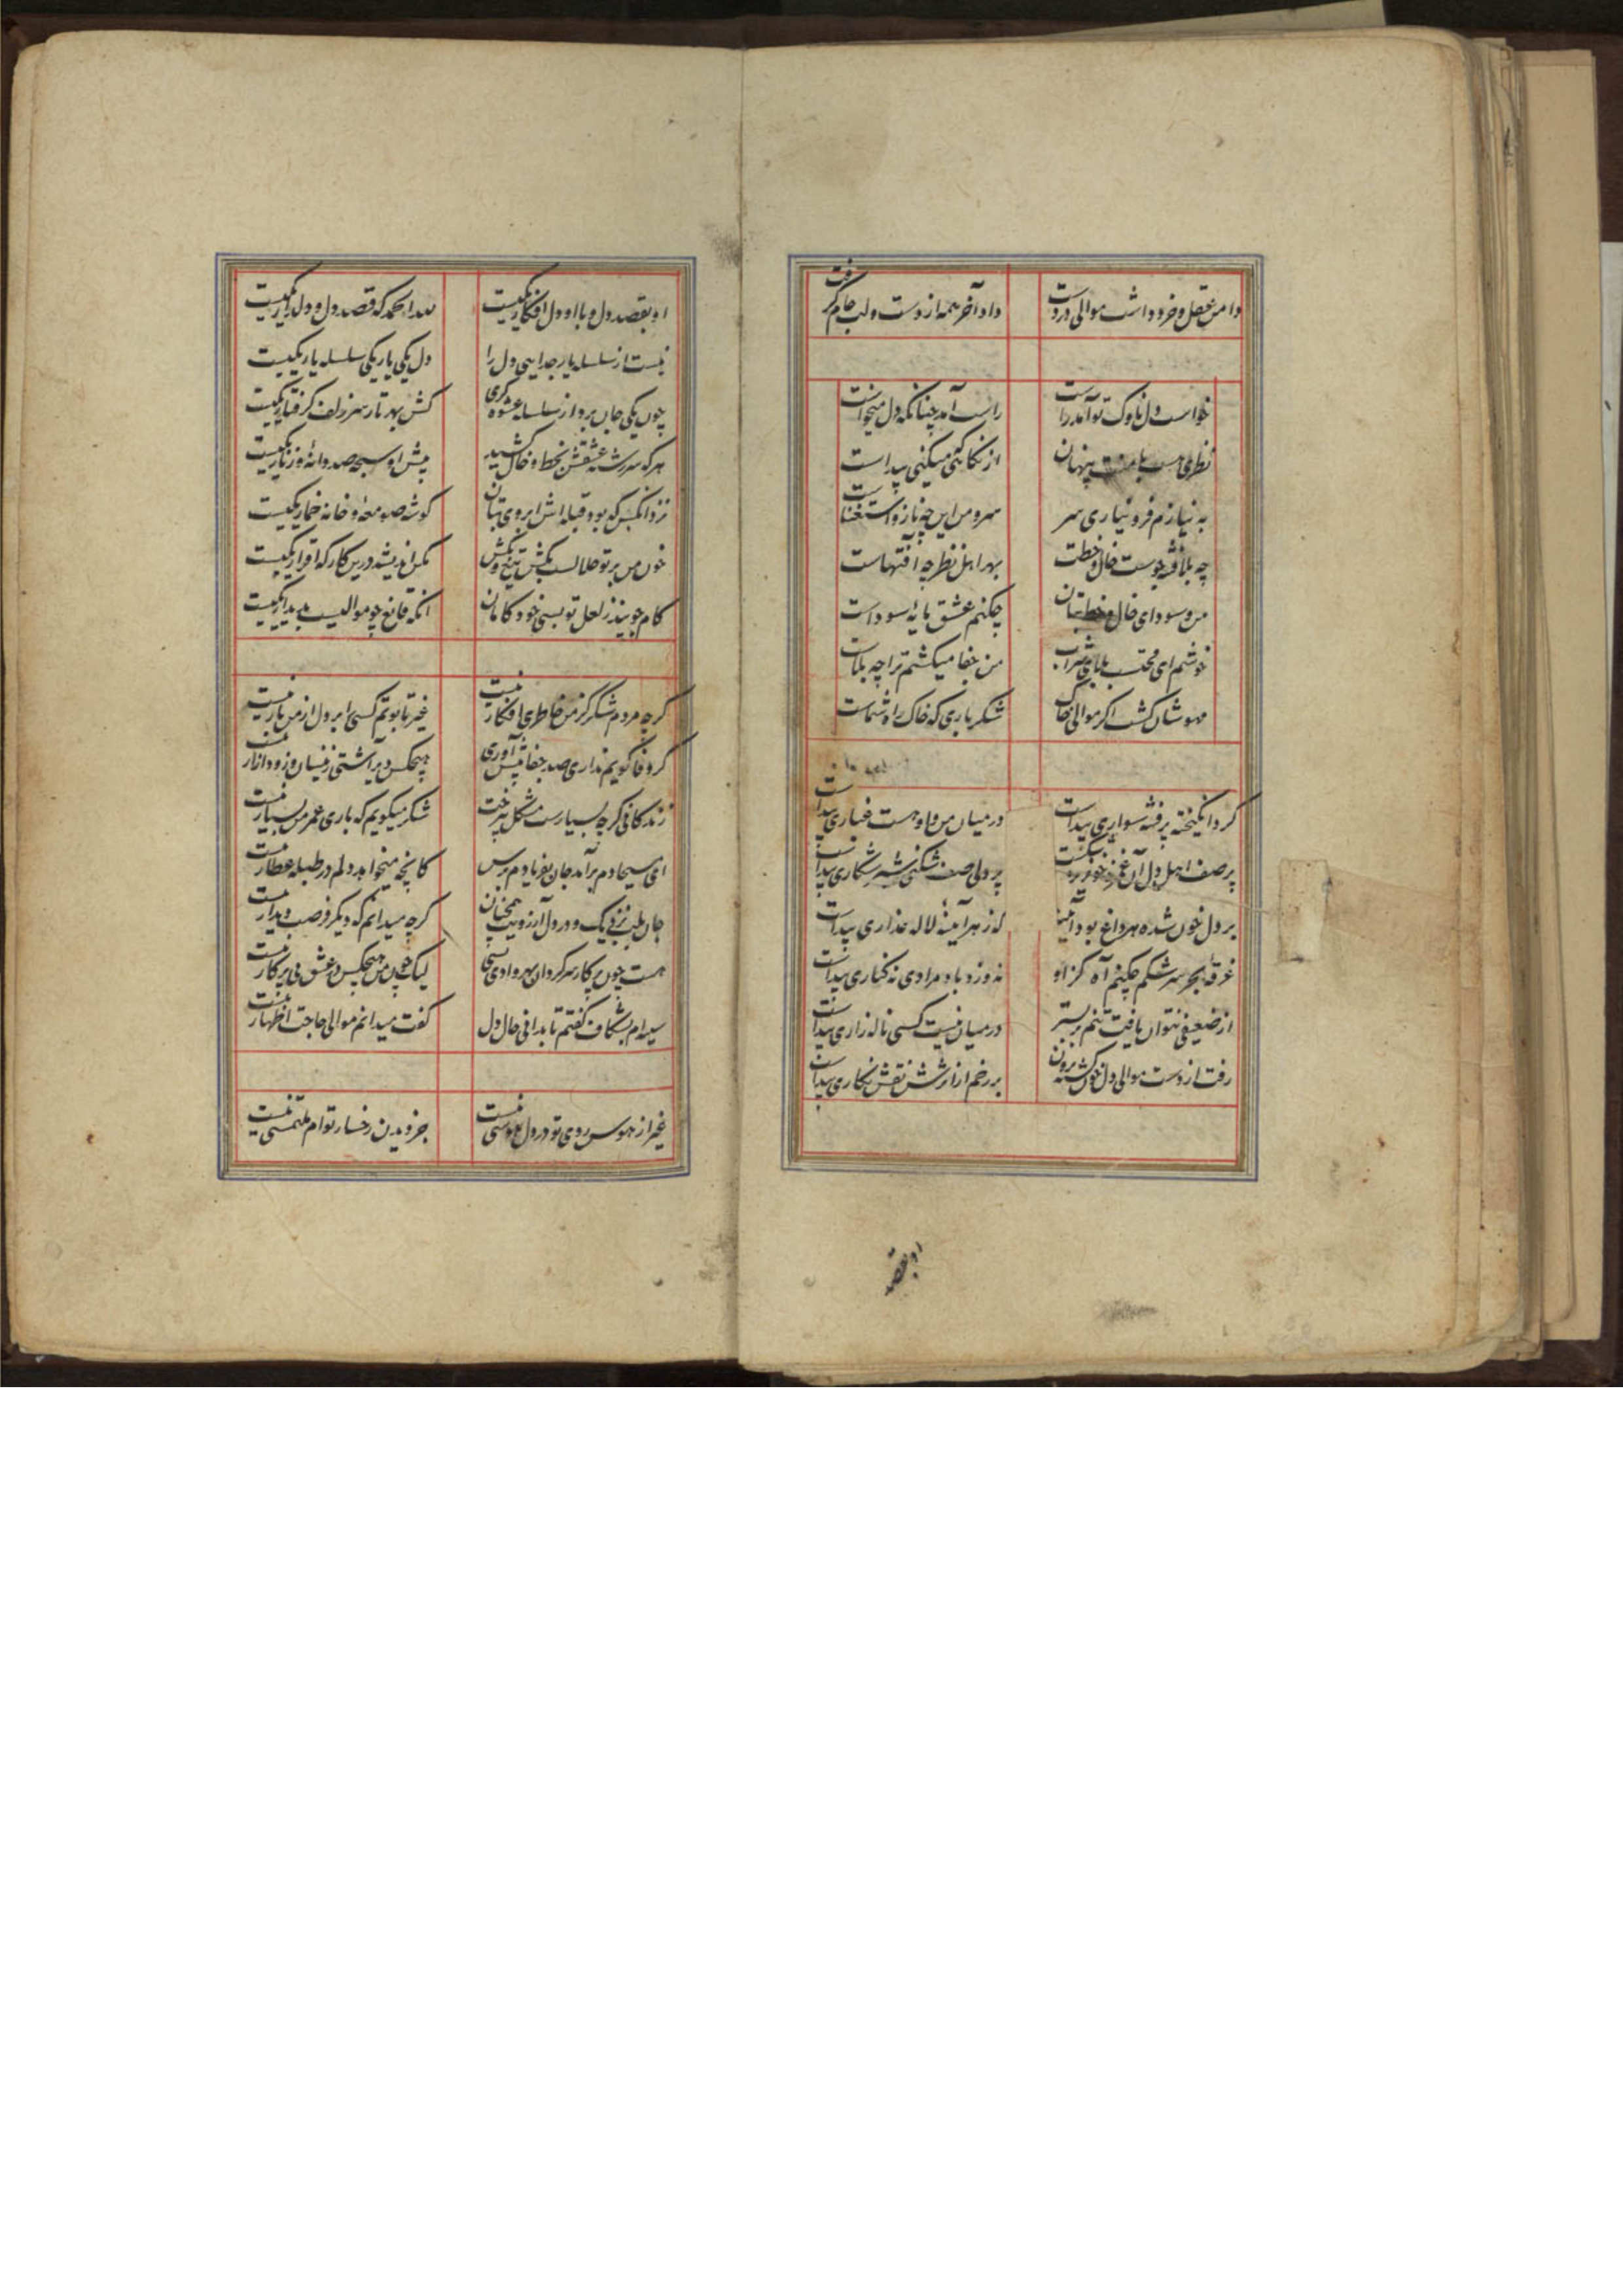 دامن عقل و خرد داشت موالی در دست
داد آخر همه از دست و لب جام گرفت
خواست دل ناوک تو آمد راست
راست آمد چنانکه دل میخواست
نظری هست با منت پنهان
از نگاهی که میکنی پیداست
به نیازم فرو نیاری سر
سرو من این چه ناز و استغناست
چه بلا فتنه جوست خال و خطت
بهر اهل نظر چه آفتهاست
من و سودای خال و خط بتان
چکنم عشق مایهٔ سوداست
خوشم ای محتسب بلای شراب
من جفا میکشم ترا چه بلاست
مهوشان کشت اگر موالی خاک
شکر باری که خاک راه شماست
گرد انگیخته پرفتنه سواری پیداست
در میان من و او هست غباری پیداست
بر صف اهل دل آن غمزه
پر دلی صف شکنی شیر شکاری پیداست
بر دل خون شده هر داغ بود آینهٔ
که ز هر آینه لاله عذاری پیداست
غرقهٔ بحر سرشکم چکنم آه کز او
نه وزد باد مرادی نه کناری پیداست
از ضعیفی نتوان یافت تنم بر بستر
در میان نیست کسی ناله زاری پیداست
رفت از دست موالی دل خون گشته برون
بر رخم از اثرش نقش نگاری پیداست
او بقصد
او بقصد دل و با او دل افکار یکیست
لله الحمد که قصد دل و دلدار یکیست
نیست از سلسله یار جدایی دل را
دل یکی یار یکی سلسله یار یکیست
چون یکی جان برد از سلسله عشوه گری
کش بهر تار سر زلف گرفتار یکیست
هر که سررشته عشقش بخط و خال کشید
پیش او سبحه صد دانه و زنار یکیست
نزد آنکس که بود قبله اش ابروی بتان
گوشه صومعه و خانه خمار یکیست
خون من بر تو حلالست بکش تیغ و بکش
مکن اندیشه درین کار که اقرار یکیست
کام جویند ز لعل تو بسی خود کامان
آنکه قانع چو موالیست بدیدار یکیست
گرچه مردم شکر کز من خاطری افکار نیست
غیر تابوتم کسی را بر دل از من بار نیست
گر وفا گویم نداری صد جفا پیش آوری
هیچکس دیر آشتی زینسان و زود آزار نیست
زندگانی گرچه بسیارست مشکل بی رخت
شکر میگویم که باری عمر من بسیار نیست
ای مسیحا دم برآمد جان بفریادم برس
کانچه میخواهد دلم در طبله عطار نیست
جان بلب نزدیک و در دل آرزویت همچنان
گرچه میدانم که دیگر فرصت دیدار نیست
هست چون پرکار سرگردان بهر وادی بسی
لیک چون من هیچکس در عشق بی پرکار نیست
سینه ام بشکاف گفتم تا بدانی حال دل
گفت میدانم موالی حاجت اظهار نیست
غیر از هوس روی تو در دل هوسی نیست
جز دیدن رخسار توام ملتمسی نیست